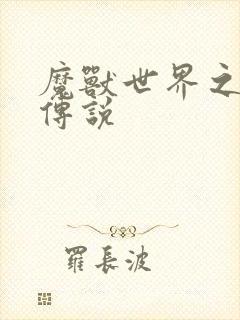 魔獸世界之
傳說
羅長波